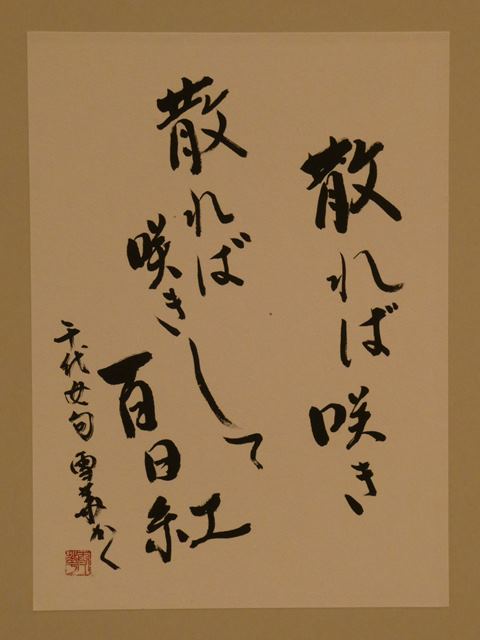 散れば咲き
散れば咲きして
百日紅
千代女句 雪華かく